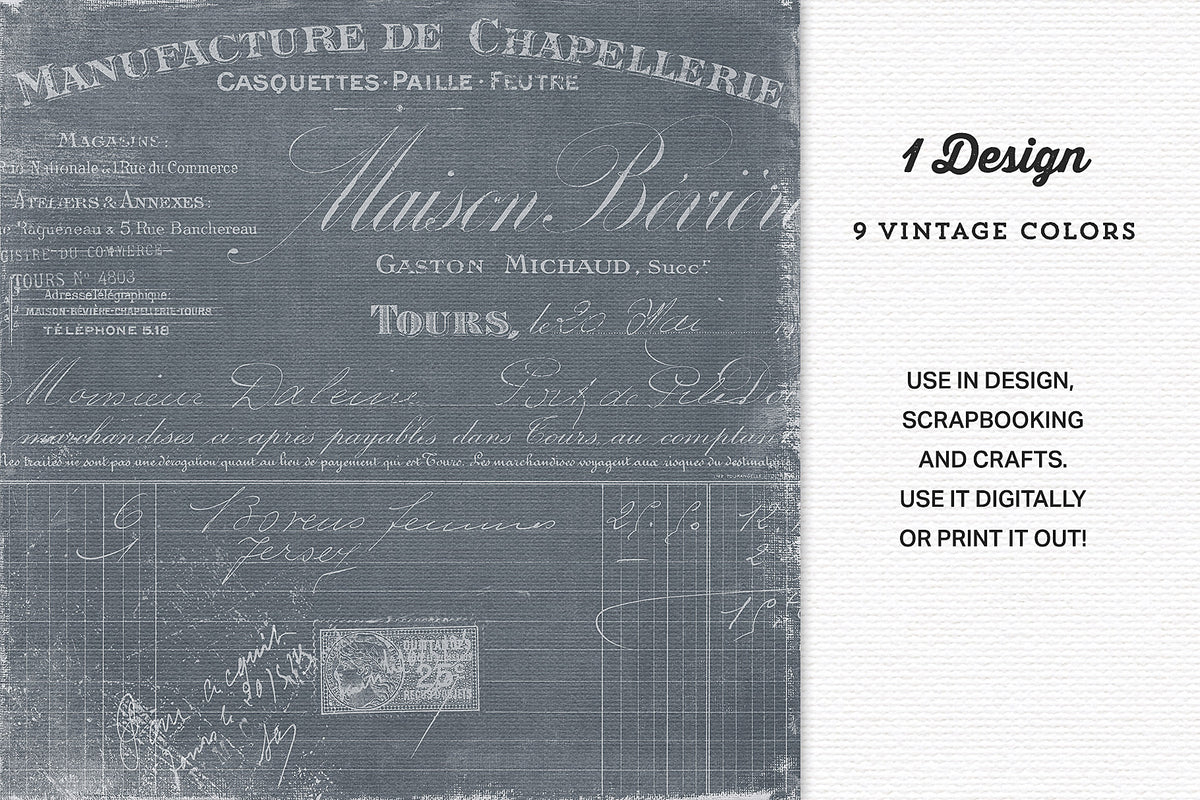 MANUFACTURE DE CHAPELLERIE
CASQUETTES · PAILLE · FEUTRE
MAGASINS:
Nationale & 1 Rue du Commerce
ATELIERS & ANNEXES:
Ragueneau & 5, Rue Banchereau
GISTRE DU COMMERCE
TOURS No 4803
Adresse Télégraphique:
MAISON-BÉVIÈRE-CHAPELLERIE-TOURS
TÉLÉPHONE 5.18
Maison Bévièr
GASTON MICHAUD, Succr
TOURS, le 20 Mai
Monsieur Port de Piles
marchandises ci-après payables dans Tours au comptan
les traites ne sont pas une dérogation quant au lieu de payement qui est Tours. Les marchandises voyagent aux risques du destinat
6 femmes
1 Jersey
acquit
QUITTANCES
25c
1 Design
9 VINTAGE COLORS
USE IN DESIGN,
SCRAPBOOKING
AND CRAFTS.
USE IT DIGITALLY
OR PRINT IT OUT!